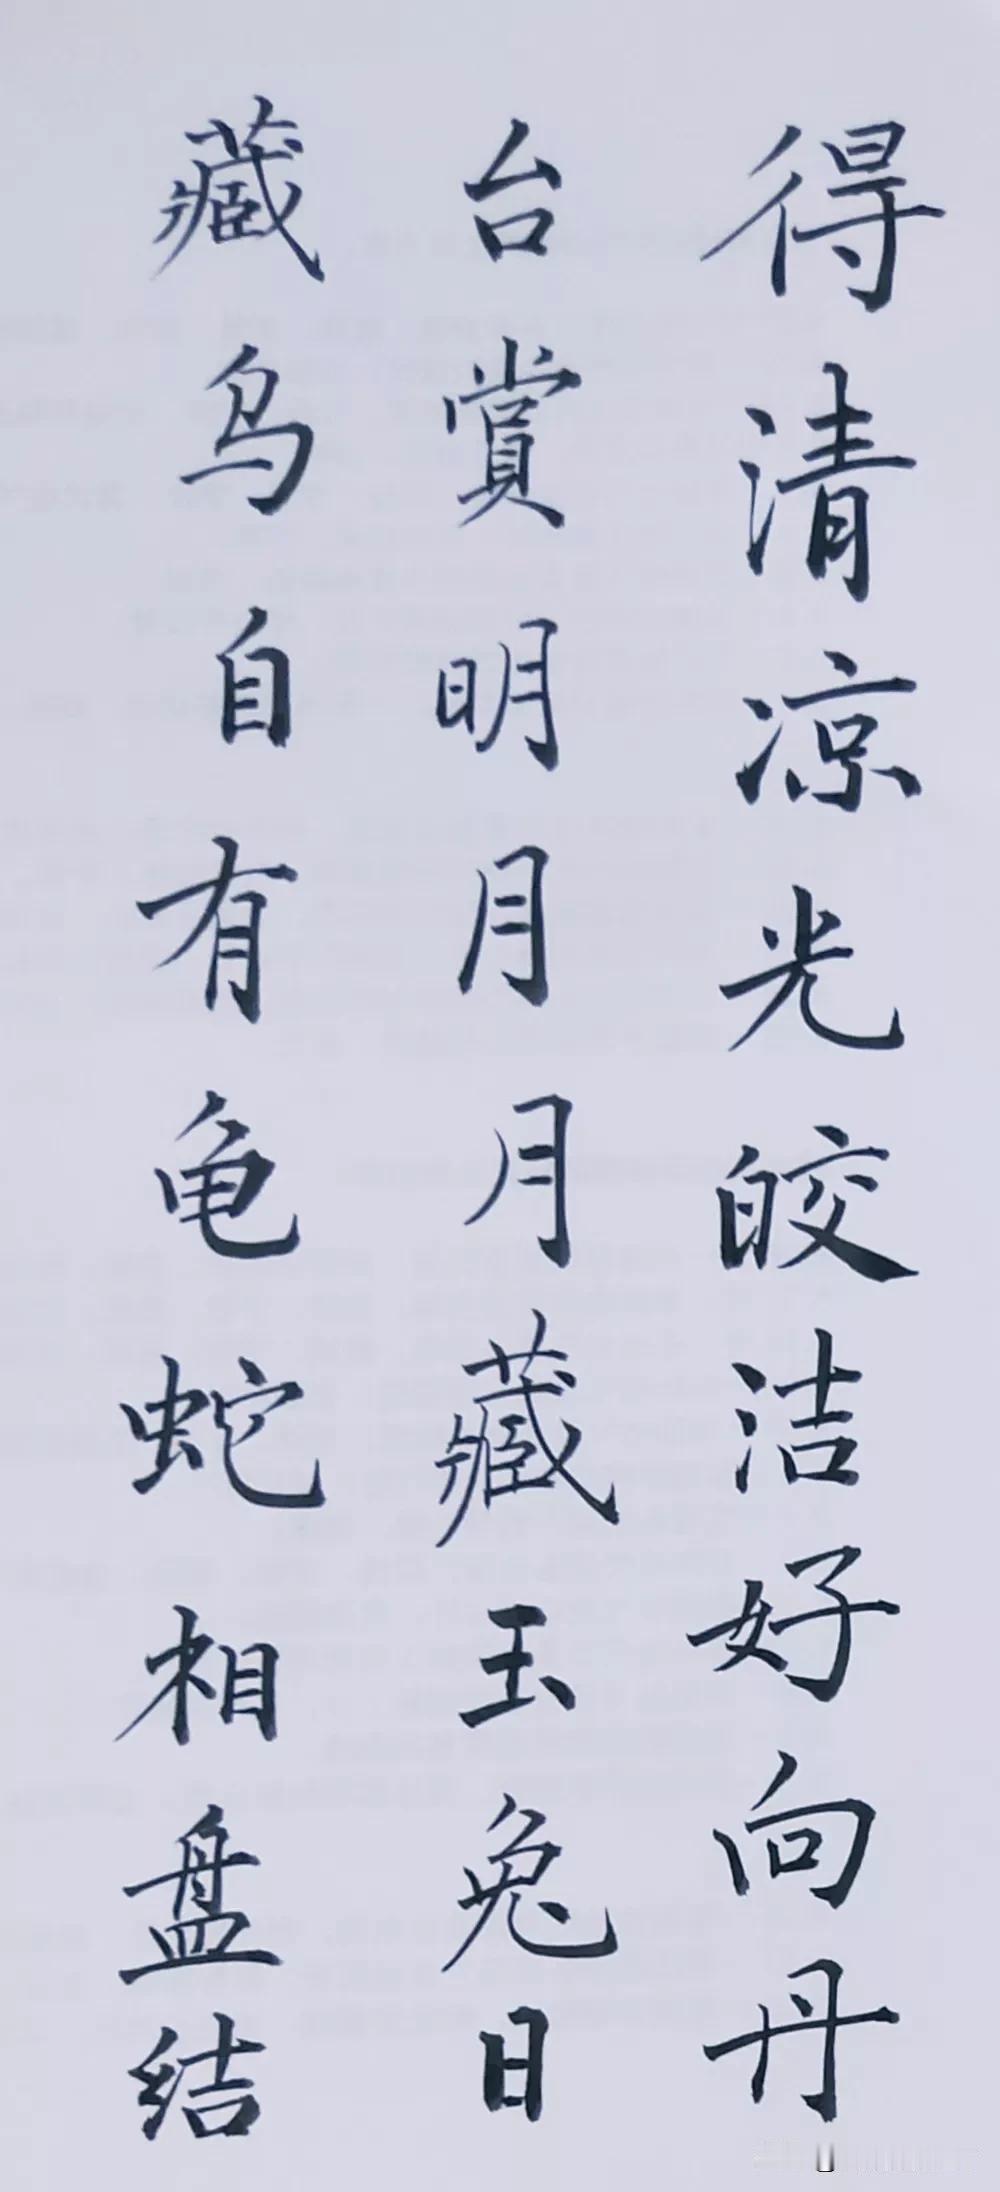 得清凉光皎洁好向丹
台赏明月月藏玉兔日
藏乌自有龟蛇相盘结